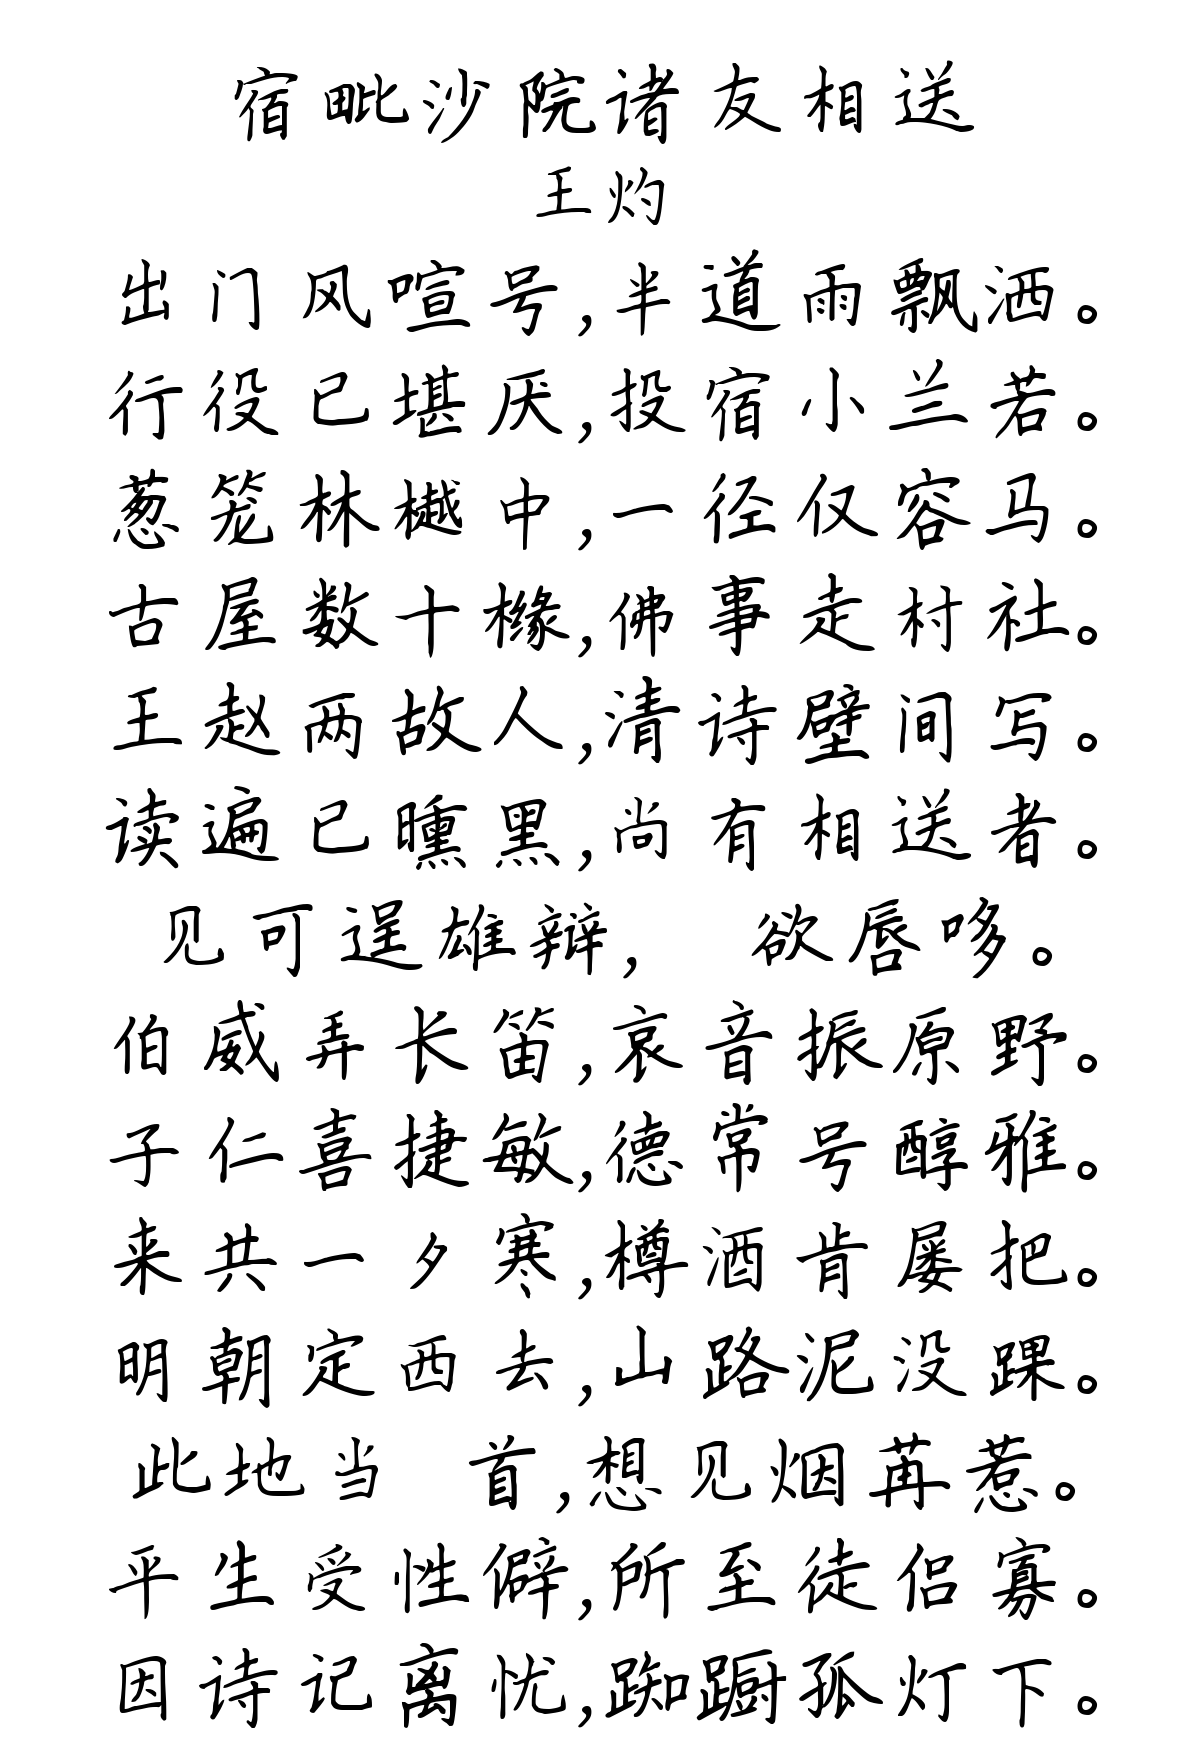 宿毗沙院诸友相送
王灼
出门风喧号,半道雨飘洒。
行役已堪厌,投宿小兰若。
葱笼林樾中,一径仅容马。
古屋数十橼,佛事走村社。
王赵两故人,清诗壁间写。
读遍已曛黑,尚有相送者。
见可逞雄辩, 欲唇哆。
伯威弄长笛,哀音振原野。
子仁喜捷敏,德常号醇雅。
来共一夕寒,樽酒肯屡把。
明朝定西去,山路泥没踝。
此地当 首,想见烟苒惹。
平生受性僻,所至徒侣寡。
因诗记离忧,踟蹰孤灯下。